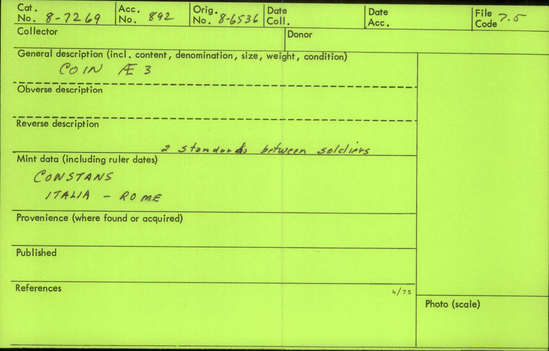 Cat. No. 8-7269 Acc. No. 892 Orig. No. 8-6536 Date Coll. Date Acc. File Code 7.5
Collector Donor
General description (incl. content, denomination, size, weight, condition)
COIN Æ 3
Obverse description
Reverse description
2 standards between soldiers
Mint data (including ruler dates)
CONSTANS
ITALIA - ROME
Provenience (where found or acquired)
Published
References 4/75
Photo (scale)